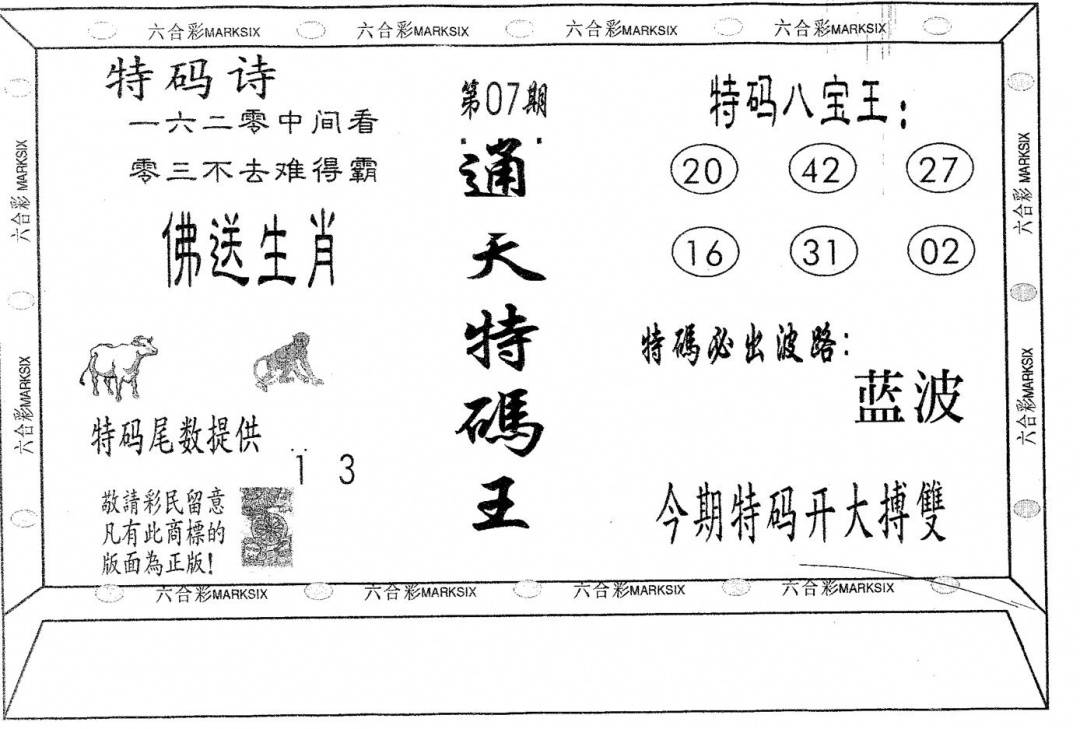 六合彩MARKSIX 六合彩MARKSIX 六合彩MARKSIX 六合彩MARKSIX
六合彩 MARKSIX
六合彩MARKSIX
特码诗
一六二零中间看
零三不去难得霸
佛送生肖
特码尾数提供
1 3
敬請彩民留意
凡有此商標的
版面為正版!
第07期
通天特碼王
特码八宝王:
20 42 27
16 31 02
特碼必出波路:
蓝波
今期特码开大搏雙
六合彩 MARKSIX
六合彩MARKSIX
六合彩MARKSIX 六合彩MARKSIX 六合彩MARKSIX 六合彩MARKSIX